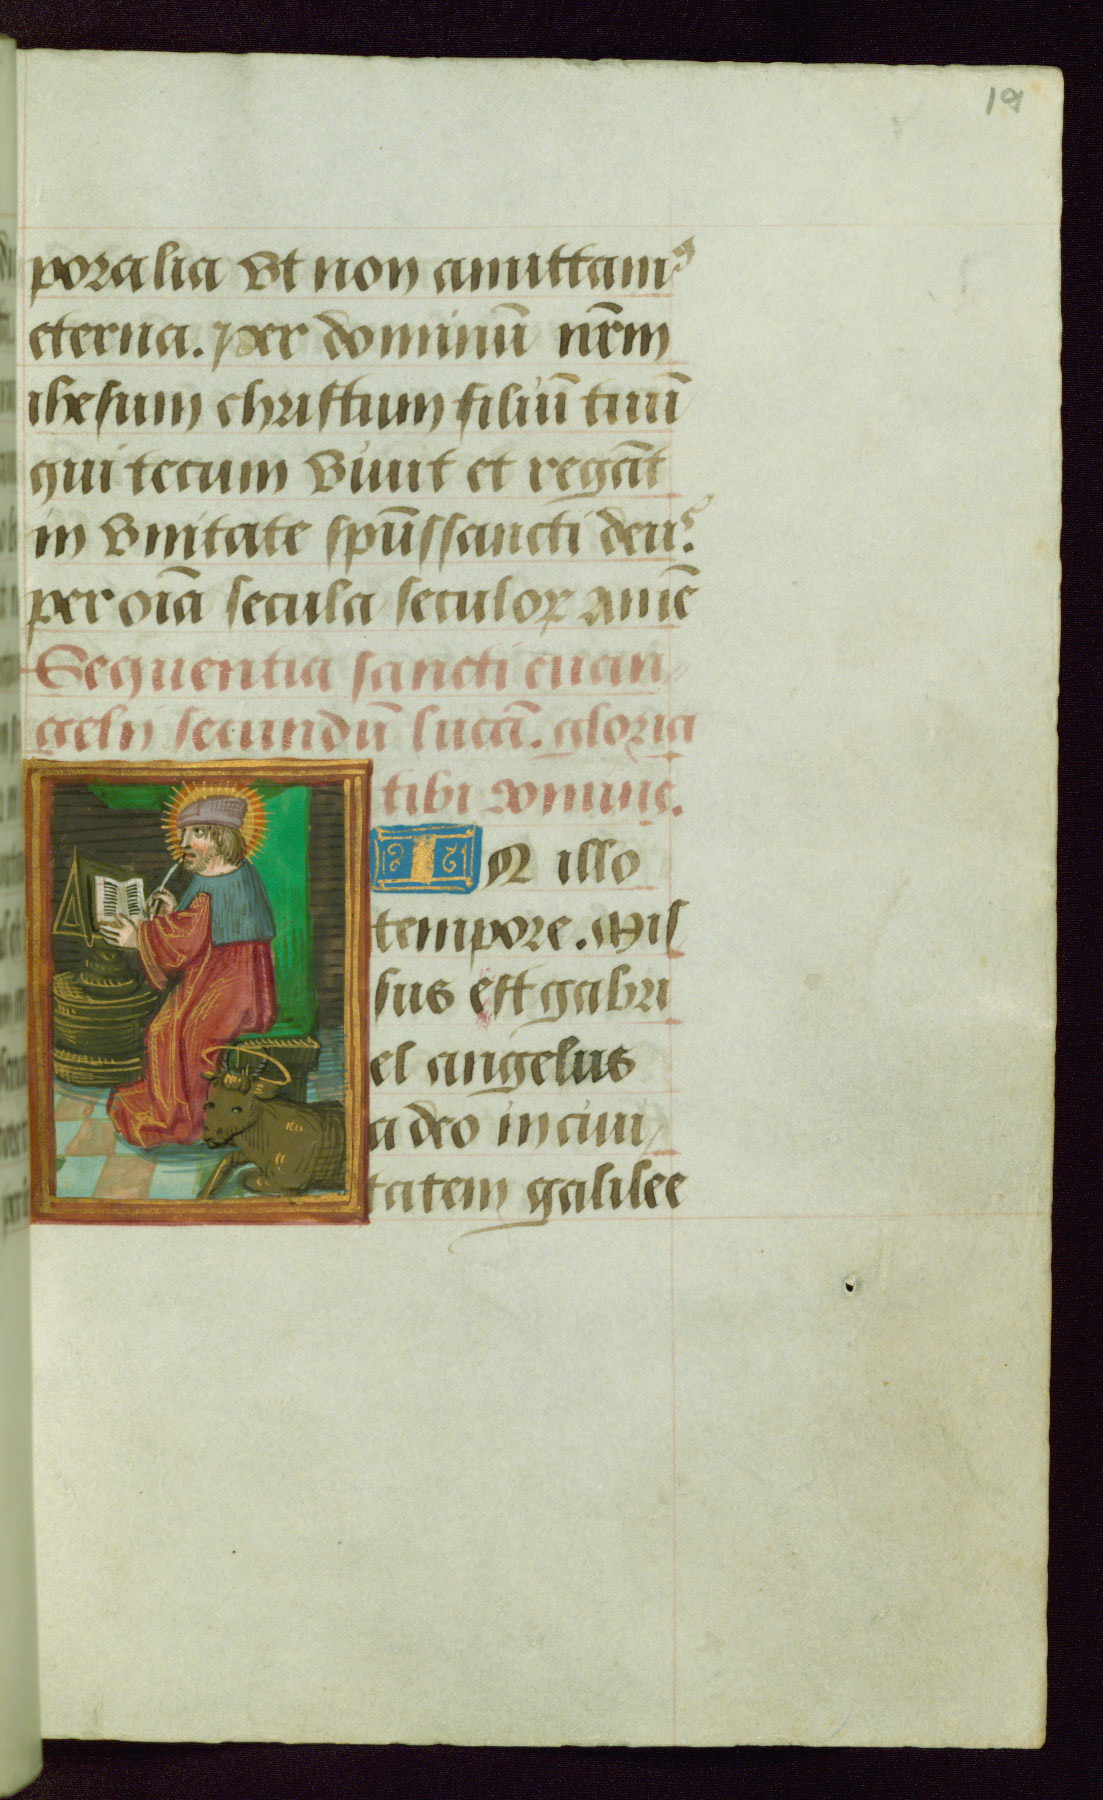 19
poralia vt non amittamꝰ
eterna. Per dominū nr̄m
ihesum christum filiū tuū
qui tecum viuit et regāt
in vnitate sp̄ussancti deus.
per oīa secula seculoꝝ amē
Sequentia sancti euan-
gelij secundū lucā. gloria
tibi domine.
IN illo
tempore. Mis
sus est gabri
el angelus
a deo in ciui
tatem galilee